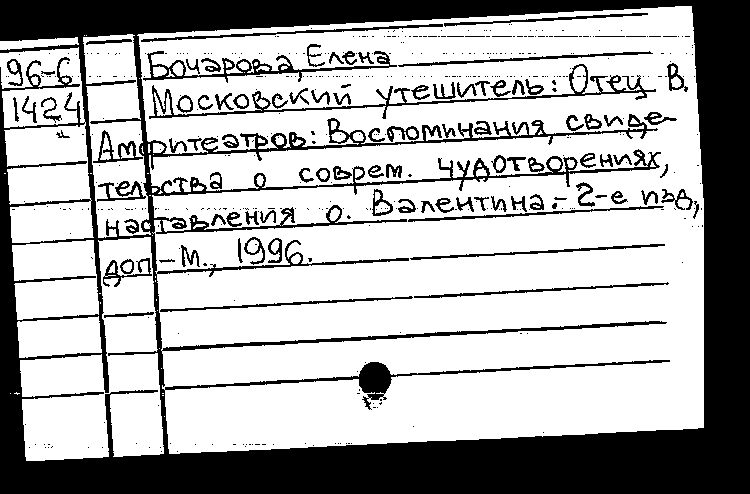 96-6 Бочарова, Елена
1424 Московский утешитель: Отец В.
Амфитеатров: Воспоминания, свиде-
тельства о соврем. чудотворениях,
наставления о. Валентина.- 2-е изд,
доп - М., 1996.